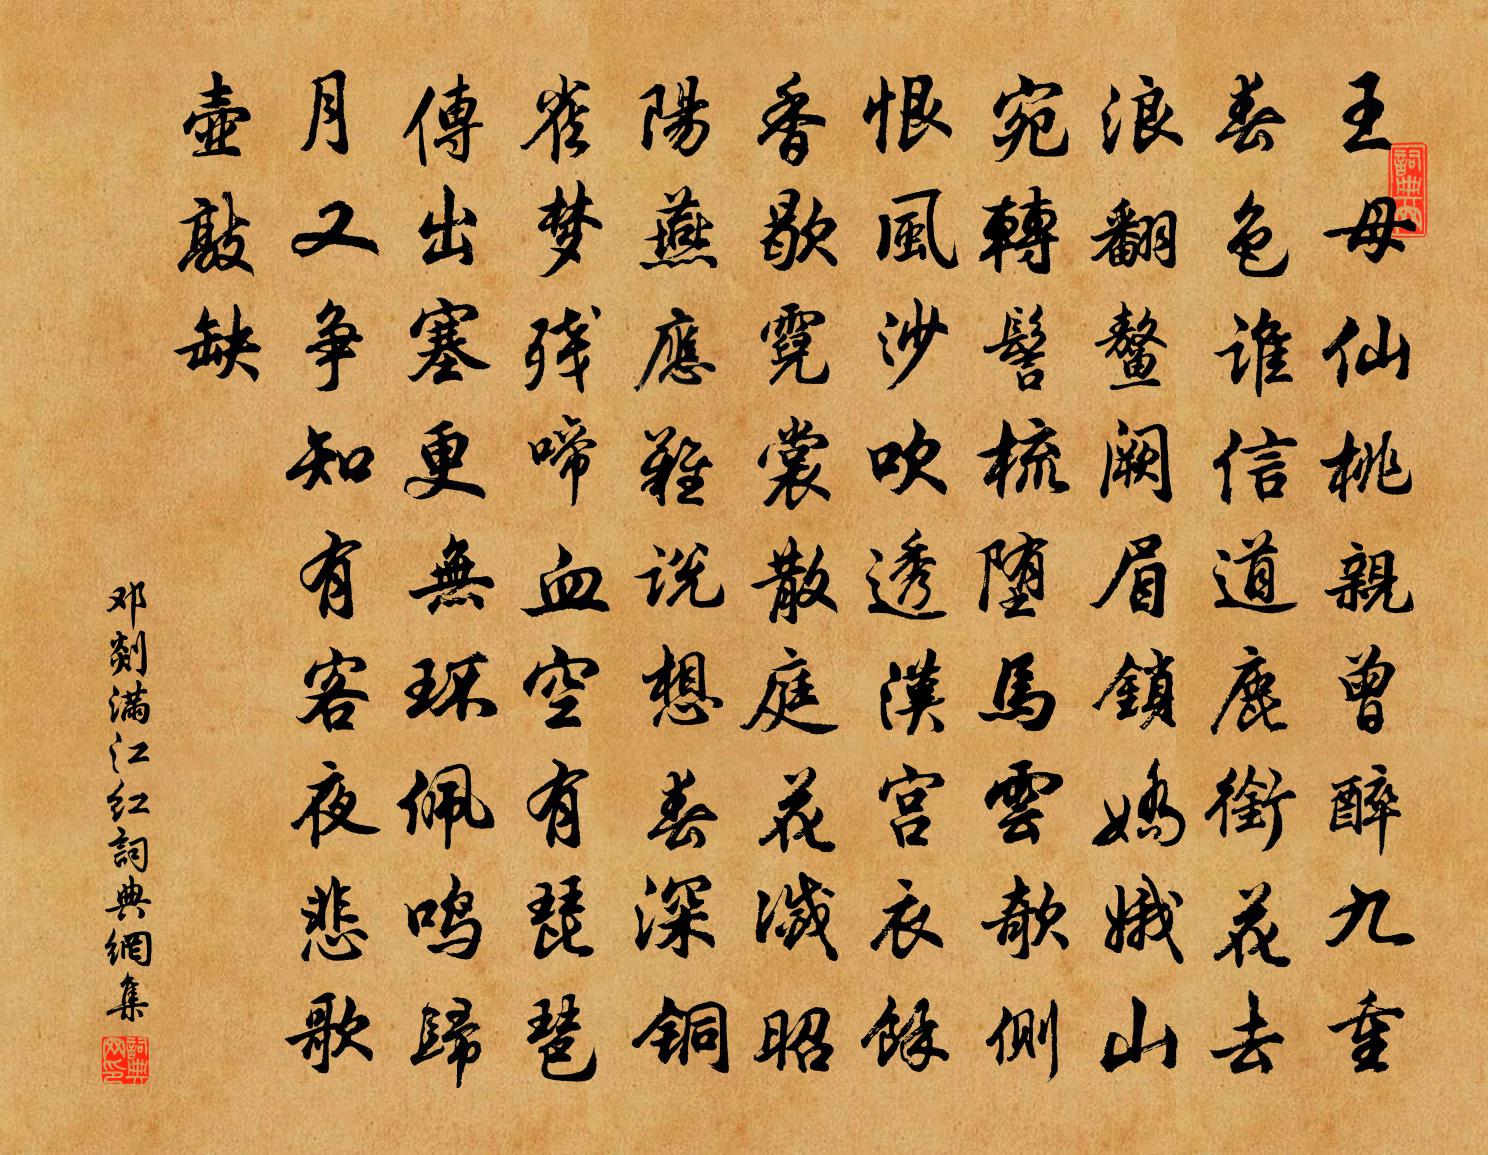 王母仙桃親曾醉九重
春色誰信道鹿銜花去
浪翻鰲闕眉鎖嬌娥山
宛轉髻梳堕馬雲欹側
恨風沙吹透漢宮衣餘
香歇霓裳散庭花滅昭
陽燕應難说想春深铜
雀梦残啼血空有琵琶
傳出塞更無环佩鸣歸
月又争知有客夜悲歌
壺敲缺
邓剡满江红詞典網集
詞典网
詞典网印